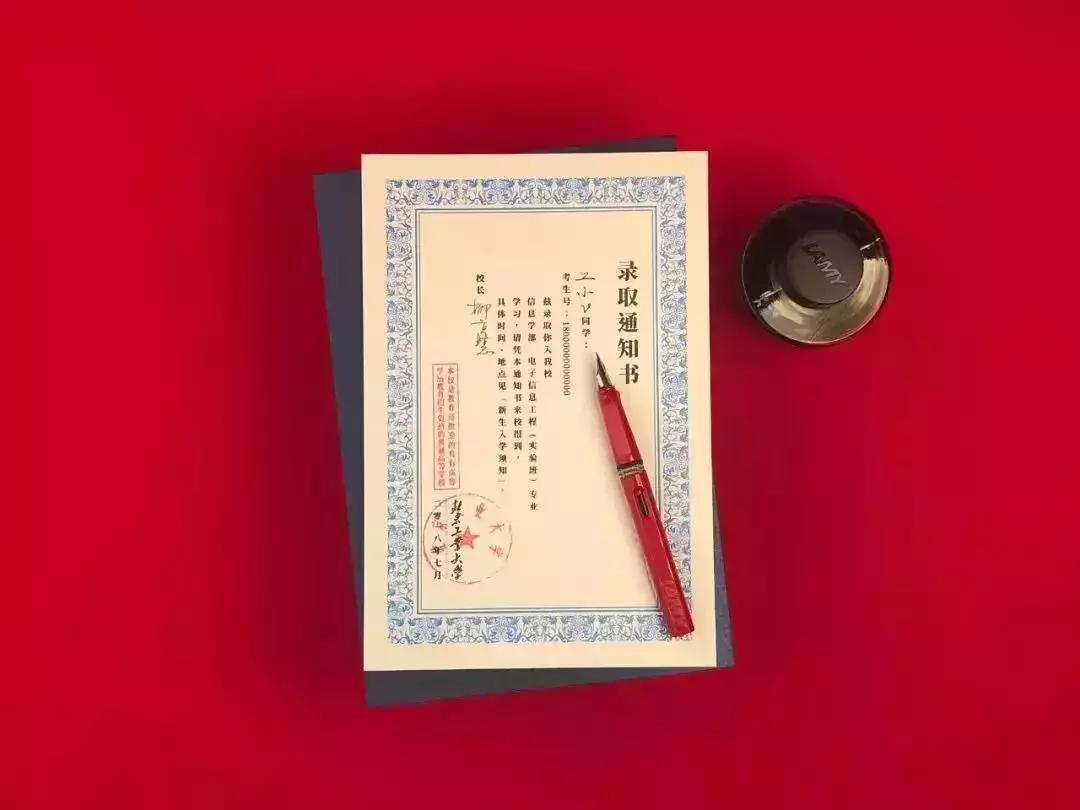 录取通知书
工小U同学：
考生号：18000000000000
兹录取你入我校
信息学部 电子信息工程（实验班）专业
学习，请凭本通知书来校报到，
具体时间、地点见《新生入学须知》。
校长
柳贡慧
本校是教育部批准的具有高等
学历教育招生资格的普通高等学校
北京工业大学
二零一八年七月
LAMY